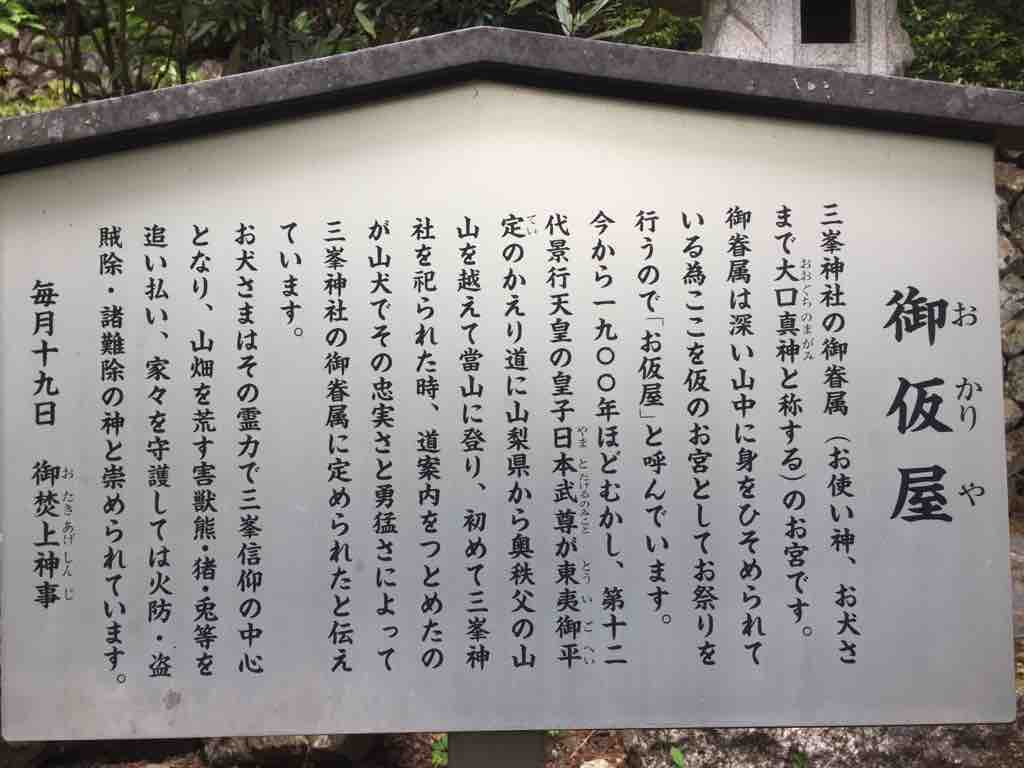 御仮屋
三峯神社の御眷属（お使い神、お犬さ
まで大口真神と称する)のお宮です。
御眷属は深い山中に身をひそめられて
いる為ここを仮のお宮としてお祭りを
行うので「お仮屋」と呼んでいます。
今から一九〇〇年ほどむかし、第十二
代景行天皇の皇子日本武尊が東夷御平
定のかえり道に山梨県から奥秩父の山
山を越えて當山に登り、初めて三峯神
社を祀られた時、道案内をつとめたの
が山犬でその忠実さと勇猛さによって
三峯神社の御眷属に定められたと伝え
ています。
お犬さまはその霊力で三峯信仰の中心
となり、山畑を荒す害獣熊・猪・兎等を
追い払い、家々を守護しては火防・盗
賊除・諸難除の神と崇められています。
毎月十九日　御焚上神事
おかりや
おおぐちのまがみ
やまとたけるのみこと
とういごへい
てい
おたきあげしんじ